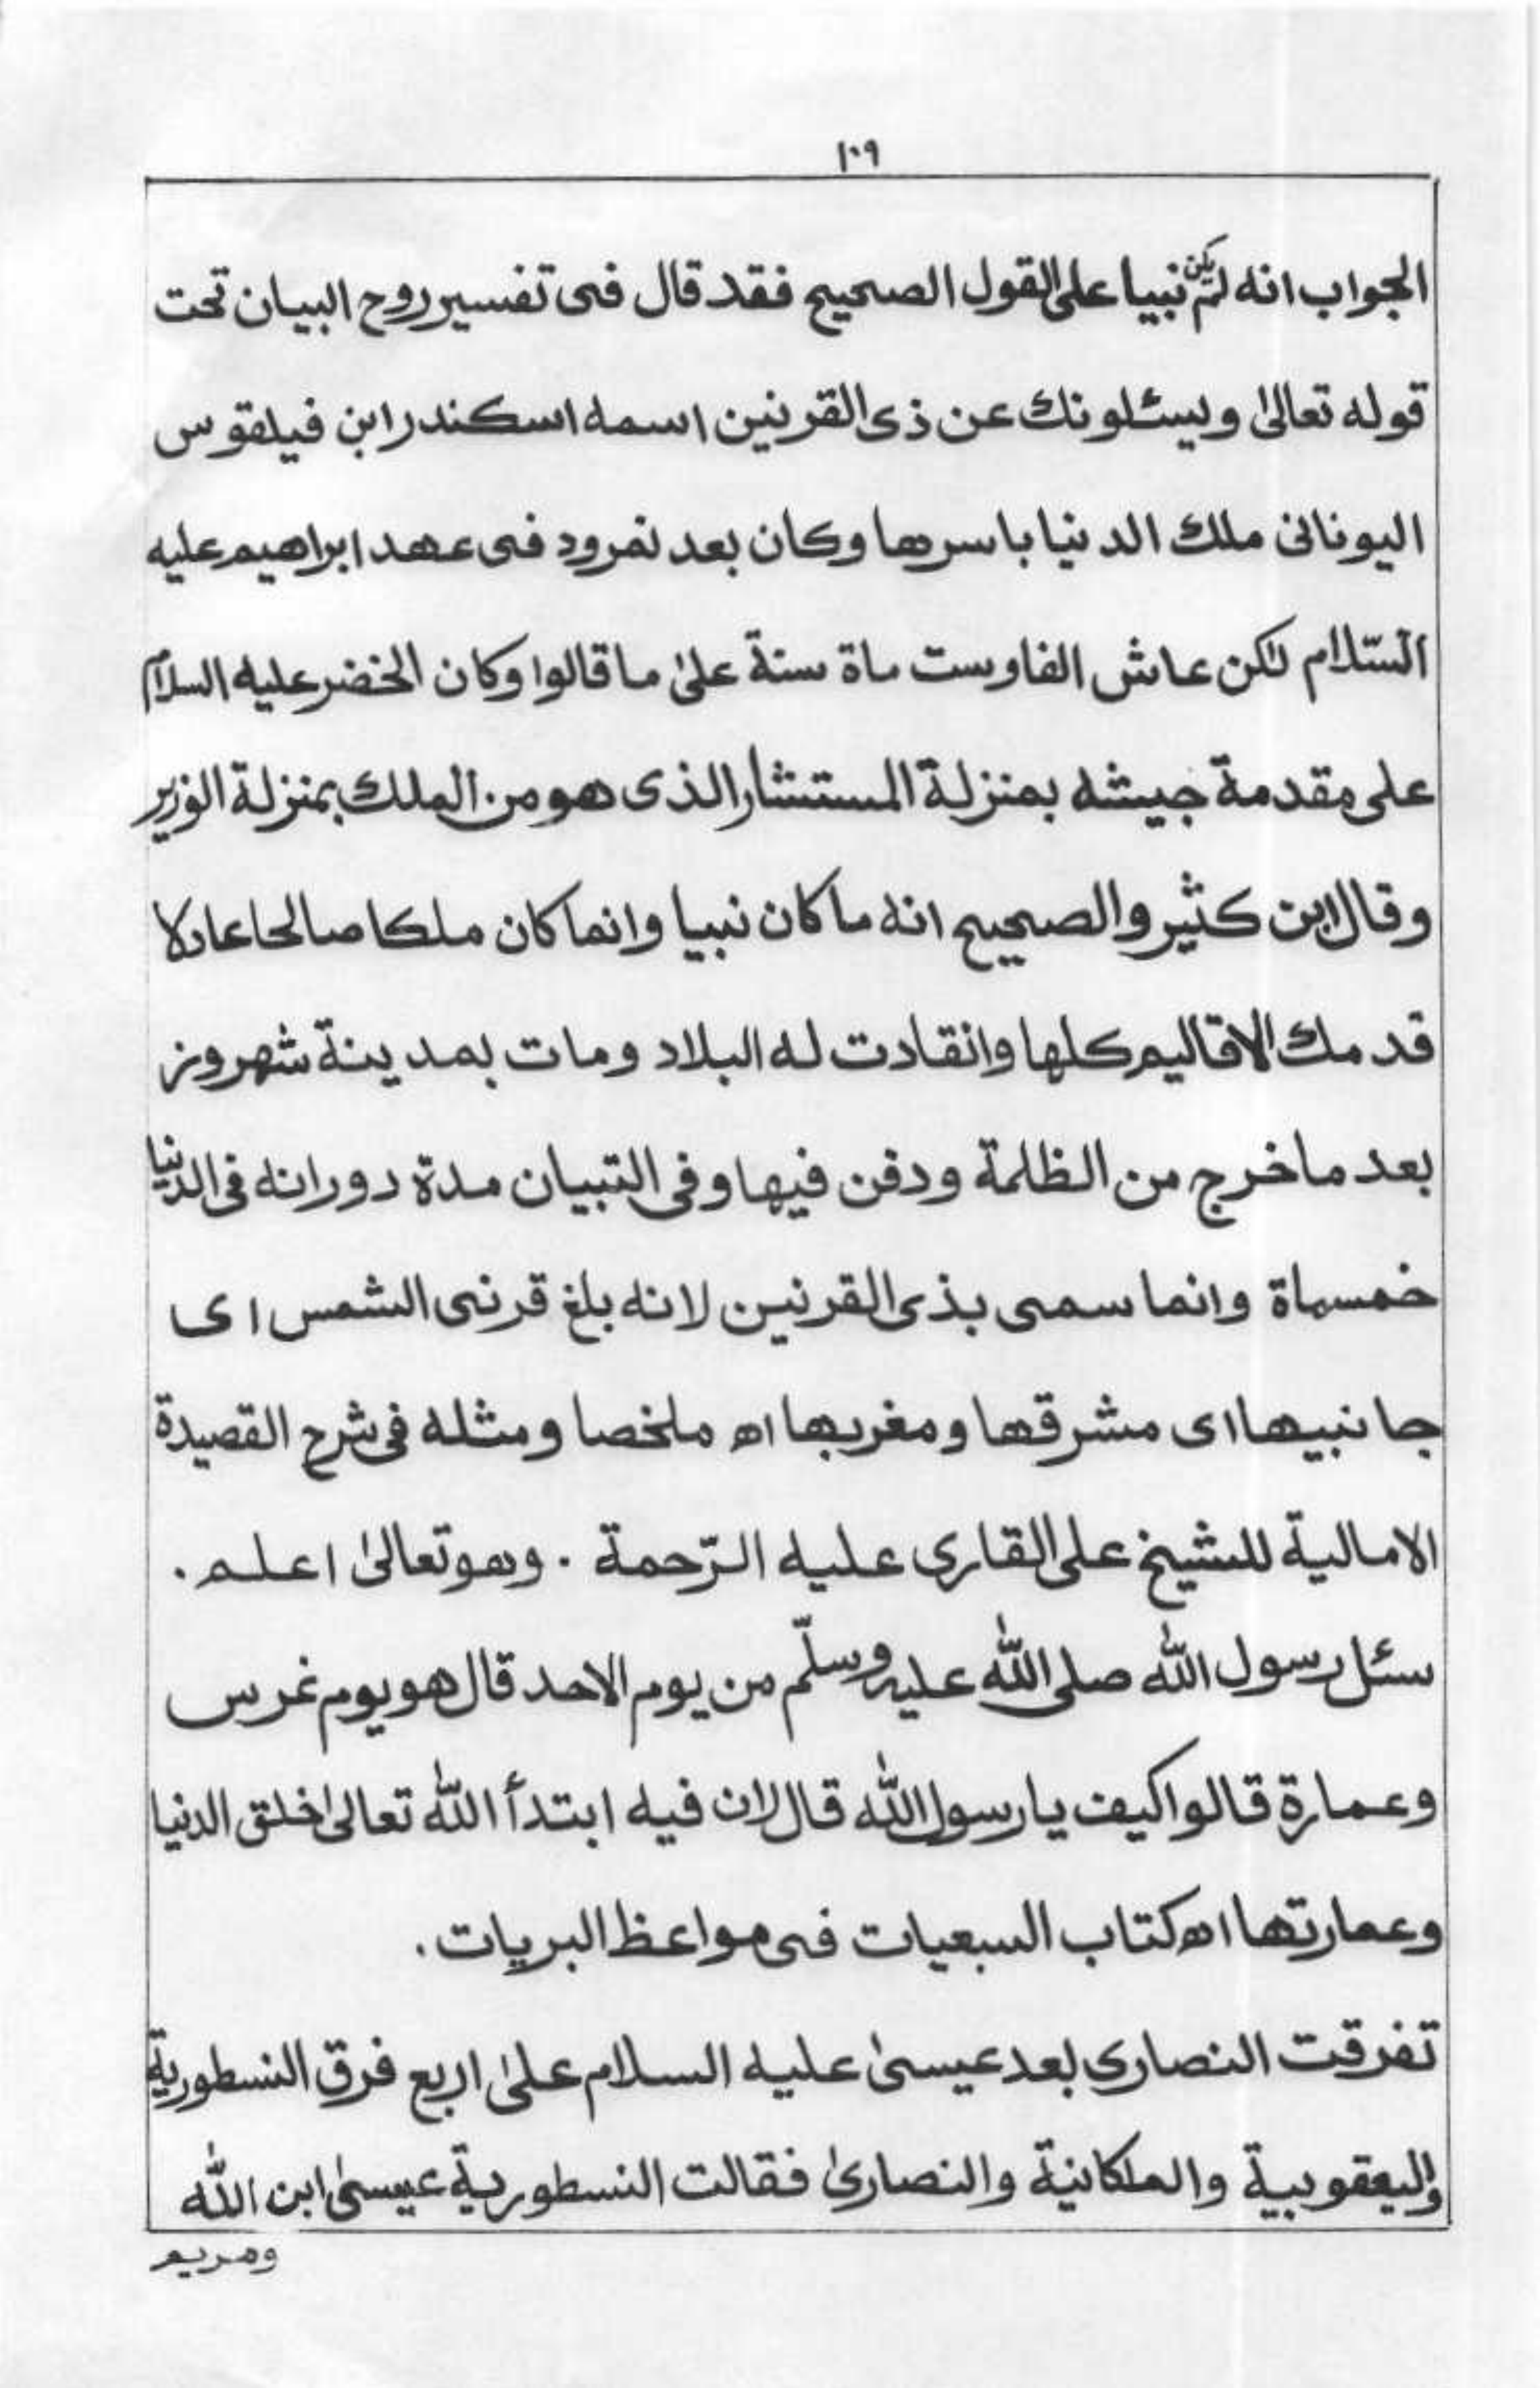 ١٠٩
الجواب انه لم يكن نبيا على القول الصحيح فقد قال فى تفسير روح البيان تحت
قوله تعالىٰ ويسئلونك عن ذى القرنين اسمه اسكندر ابن فيلقوس
اليونانى ملك الدنيا باسرها وكان بعد نمرود فى عهد ابراهيم عليه
السّلام لٰكن عاش الفا وست ماة سنة علىٰ ما قالوا وكان الخضر عليه السلام
على مقدمة جيشه بمنزلة المستشار الذى هو من الملك بمنزلة الوزير
وقال ابن كثير والصحيح انه ما كان نبيا وانما كان ملكا صالحا عادلا
قد ملك الاقاليم كلها وانقادت له البلاد ومات بمدينة شهروز
بعد ما خرج من الظلمة ودفن فيها وفى التبيان مدة دورانه فى الدنيا
خمسماة وانما سمى بذى القرنين لانه بلغ قرنى الشمس اى
جانبيها اى مشرقها ومغربها اھ ملخصا ومثله فى شرح القصيدة
الامالية للشيخ على القارى عليه الرّحمة . وهو تعالىٰ اعلم .
سئل رسول اللّٰه صلى اللّٰه عليه وسلّم من يوم الاحد قال هو يوم غرس
وعمارة قالوا كيف يا رسول اللّٰه قال لان فيه ابتدأ اللّٰه تعالىٰ خلق الدنيا
وعمارتها اھ كتاب السبعيات فى مواعظ البريات .
تفرقت النصارى بعد عيسىٰ عليه السلام علىٰ اربع فرق النسطورية
واليعقوبية والملكانية والنصارىٰ فقالت النسطورية عيسىٰ ابن اللّٰه
ومريم